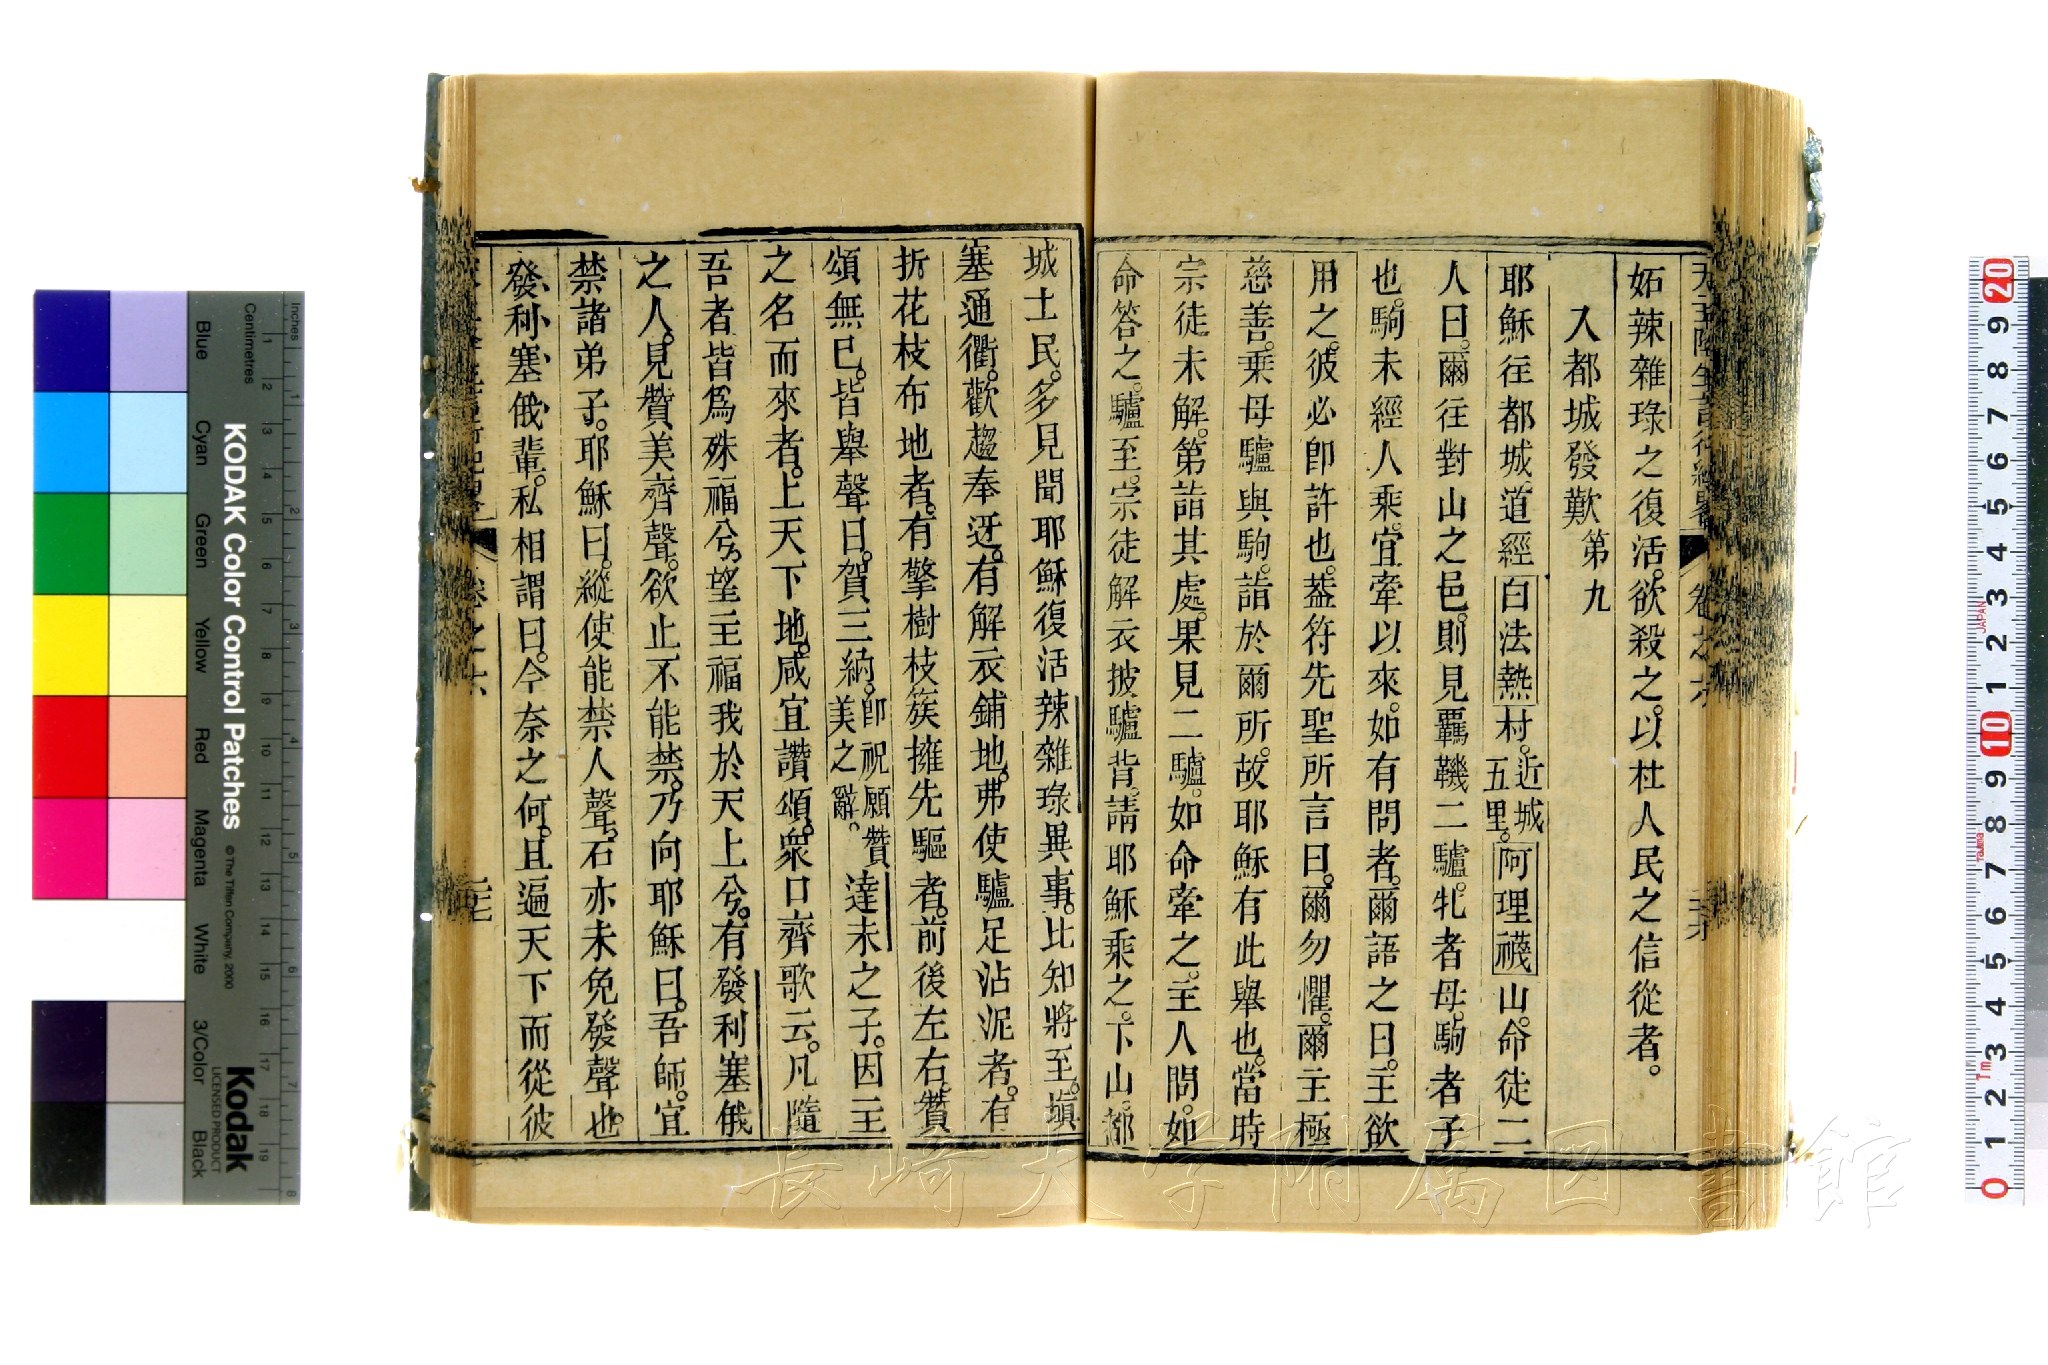 妬辣雜琭之復活。欲殺之。以杜人民之信從者。
入都城發歎 第九
耶穌往都城道經白法熱村。近城五里。阿理襪山。命徒二
人曰。爾往對山之邑。則見羈鞿二驢。牝者母。駒者子
也。駒未經人乘。宜牽以來。如有問者。爾語之曰。主欲
用之。彼必卽許也。葢符先聖所言曰。爾勿懼。爾主極
慈善。乗母驢與駒。詣於爾所。故耶穌有此舉也。當時
宗徒未解。第詣其處。果見二驢。如命牽之。主人問。如
命答之。驢至。宗徒解衣披驢背。請耶穌乘之。下山。都
卷之六
城士民。多見聞耶穌復活辣雜琭異事。比知將至。塡
塞通衢。歡趨奉迓。有解衣鋪地。弗使驢足沾泥者。有
折花枝布地者。有擎樹枝簇擁先驅者。前後左右。贊
頌無已。皆舉聲曰。賀三納。卽祝願贊美之辭。達未之子。因主
之名而來者。上天下地。咸宜讚頌。衆口齊歌云。凡隨
吾者皆爲殊福兮。望主福我於天上兮。有發利塞俄
之人。見贊美齊聲。欲止不能禁。乃向耶穌曰。吾師。宜
禁諸弟子。耶穌曰。縱使能禁人聲。石亦未免發聲也。
發利塞俄輩。私相謂曰。今奈之何。且遍天下而從彼
卷之六
長崎大学附属図書館
Inches
Centimetres
KODAK Color Control Patches
© The Tiffen Company, 2000
Kodak
LICENSED PRODUCT
Blue
Cyan
Green
Yellow
Red
Magenta
White
3/Color
Black
20
9
8
7
6
5
4
3
2
1
10
9
8
7
6
5
4
3
2
1
0
JAPAN